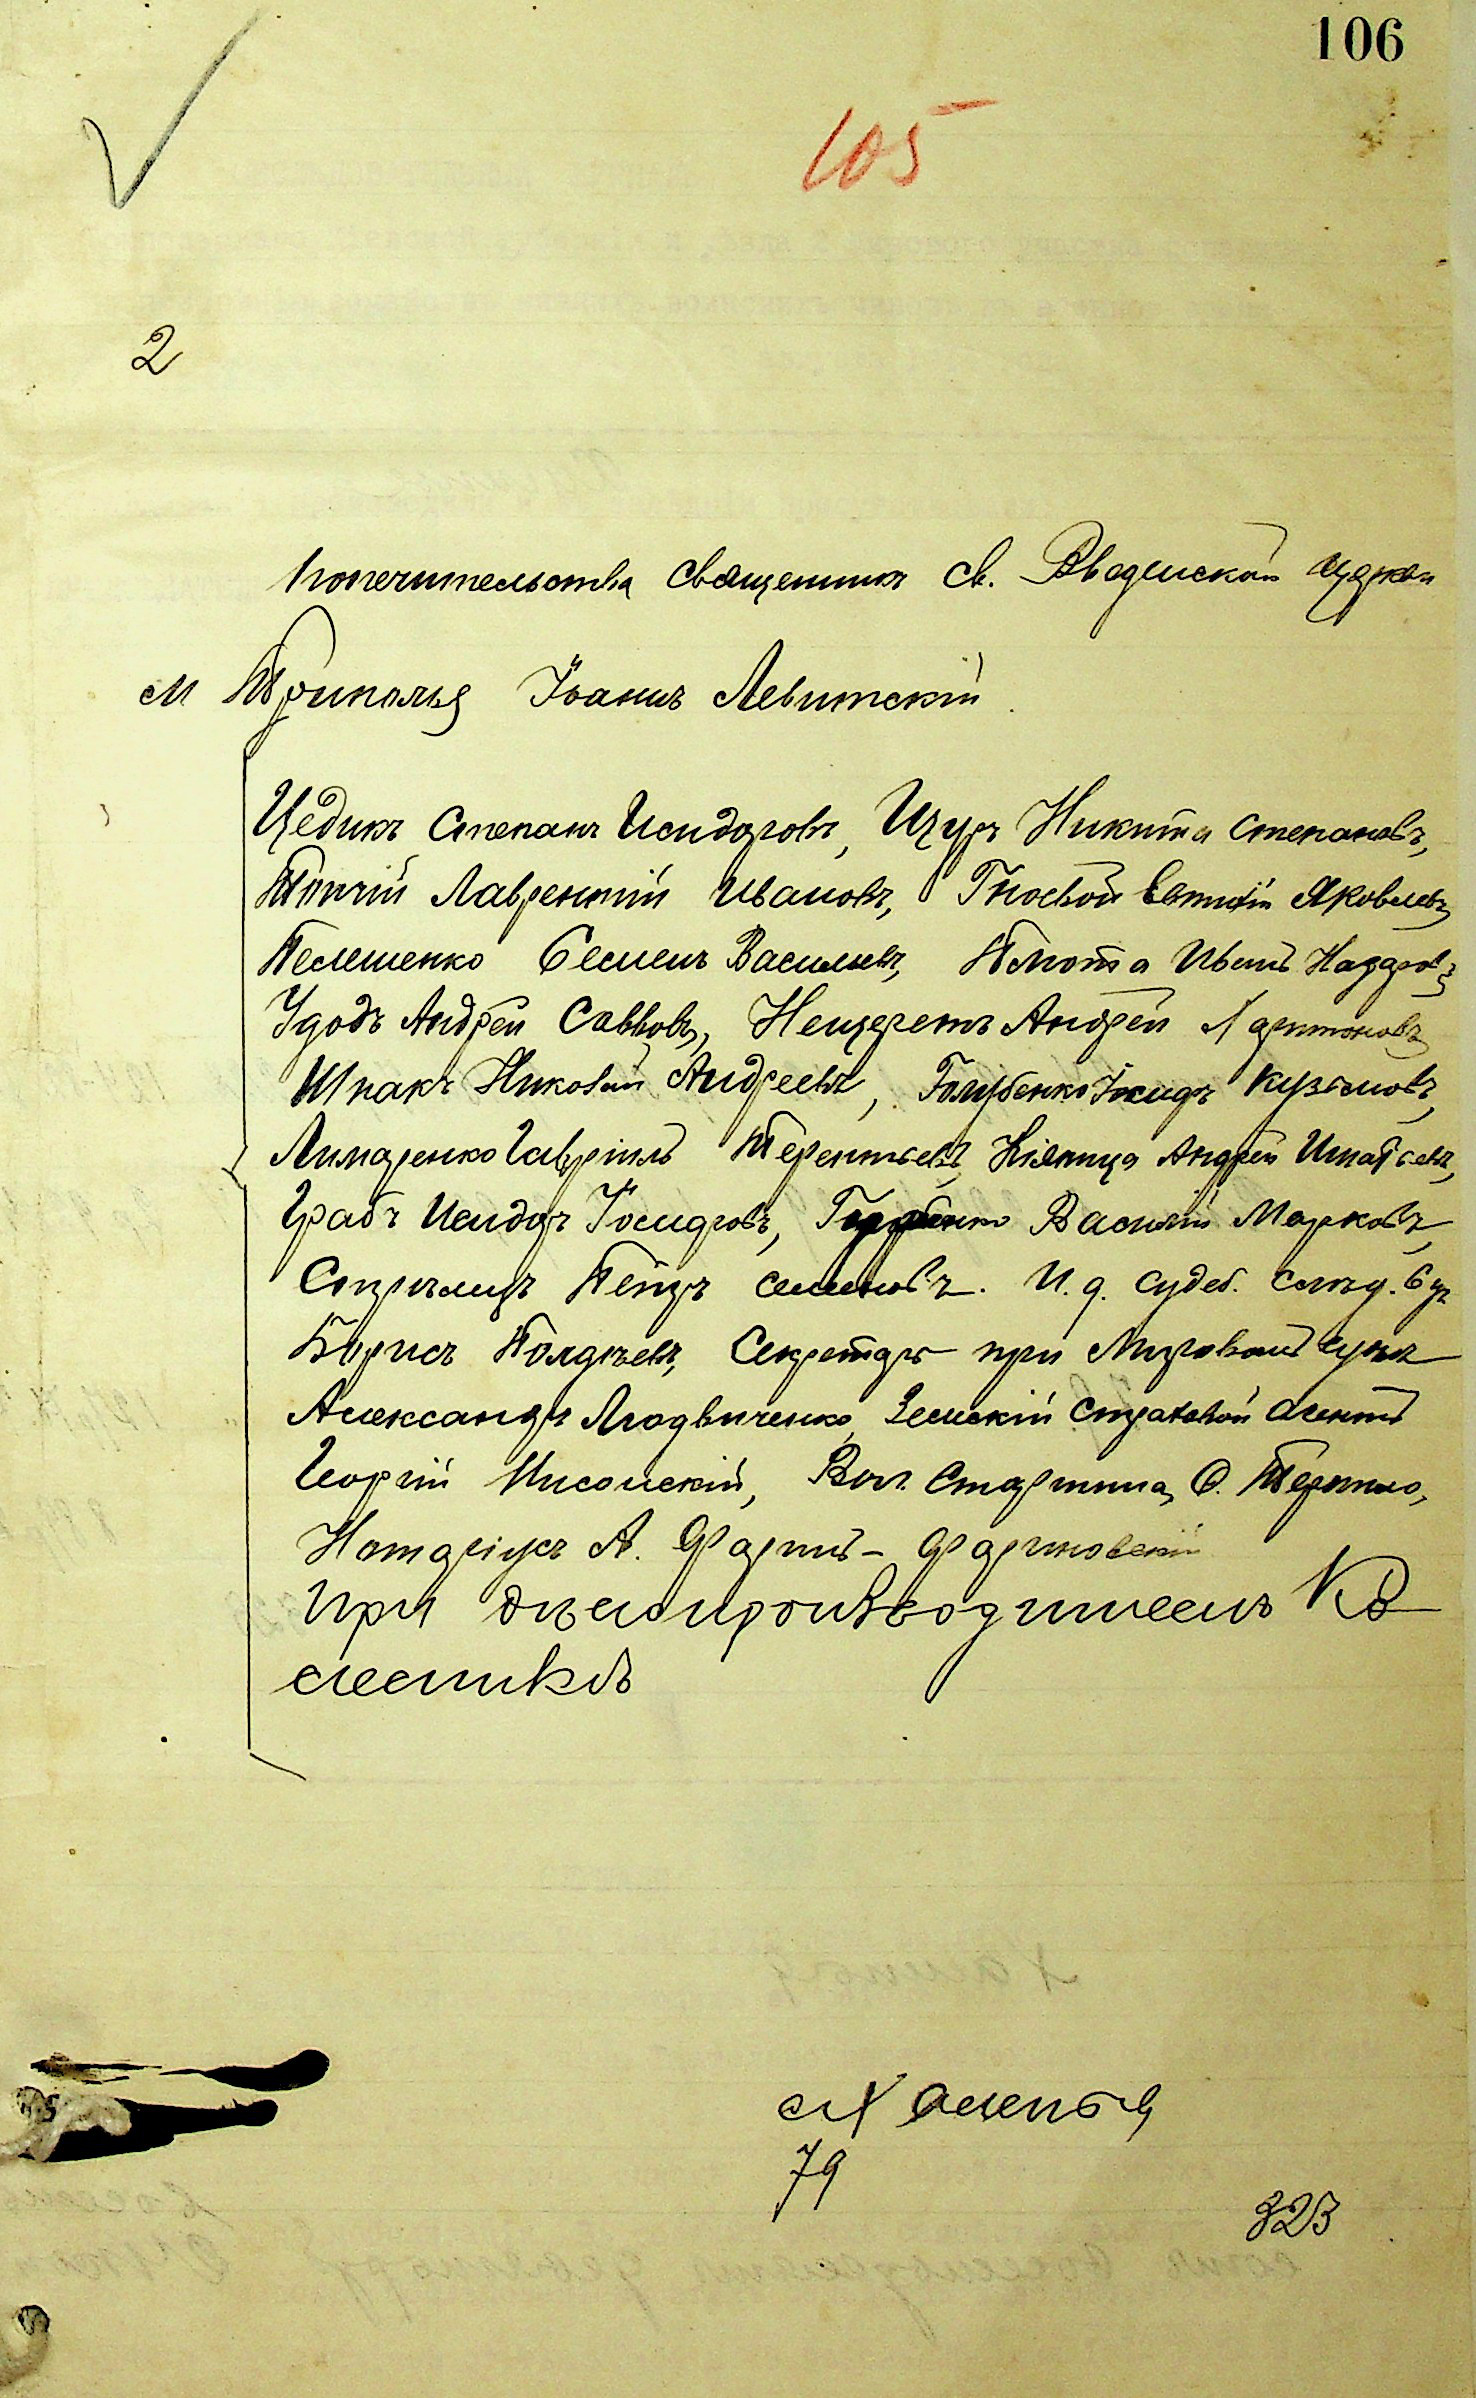 106
105
2
попечительства священникъ св. Введенской церкви
м Триполья Іоаннъ Левитскій
Цедикъ Степанъ Исидоровъ, Щуръ Никита Степановъ,
Топчій Лаврентій Ивановъ, Гноевой Евтихій Яковлевъ
Пелешенко Семенъ Васильевъ, Плюта Иванъ Назаровъ
Удодъ Андрей Саввовъ, Нещеретъ Андрей Харитоновъ
Шпакъ Николай Андреевъ, Голубенко Іосифъ Кузьмовъ,
Лимаренко Гавріилъ Терентьевъ, Кіяница Андрей Игнатьевъ,
Грабъ Исидоръ Іосифовъ, Василій Марковъ,
Стрѣлецъ Петръ Семеновъ. И. д. судеб. слѣд. 6 уч
Борисъ Секретарь при Мировомъ
Александръ Людвиченко, Земскій Страховой Агентъ
Георгій Нисонскій, Вол. Старшина,
Нотаріусъ А.
при дѣлопроизводителѣ
м Халепья
79
323